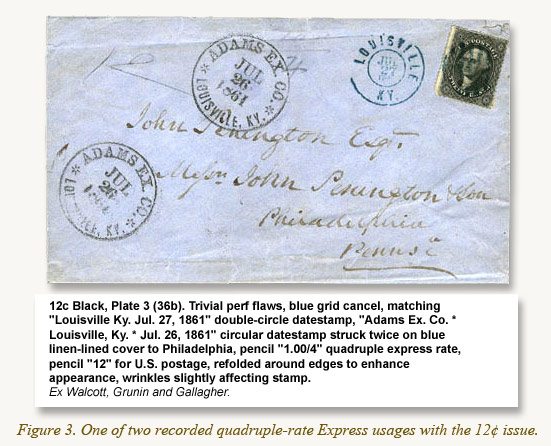 ADAMS EX. CO.
JUL
26
1861
* LOUISVILLE, KY. *
LOUISVILLE
JUL
KY.
John Penington Esqr.
Messrs John Penington & Son
Philadelphia
Penns
ADAMS EX. CO.
JUL
26
1861
LOUISVILLE, KY. *
12c Black, Plate 3 (36b). Trivial perf flaws, blue grid cancel, matching
"Louisville Ky. Jul. 27, 1861" double-circle datestamp, "Adams Ex. Co. *
Louisville, Ky. * Jul. 26, 1861" circular datestamp struck twice on blue
linen-lined cover to Philadelphia, pencil "1.00/4" quadruple express rate,
pencil "12" for U.S. postage, refolded around edges to enhance
appearance, wrinkles slightly affecting stamp.
Ex Walcott, Grunin and Gallagher.
Figure 3. One of two recorded quadruple-rate Express usages with the 12¢ issue.